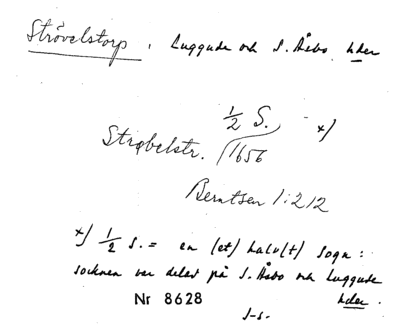 Strövelstorp, Luggude och S. Åsbo hder
1/2 S. x)
Strøbelstr. 1656
Berntsen 1:212
x) 1/2 S. = en (et) halv(t) Sogn:
socknen var delad på S. Åsbo och Luggude
Nr 8628 hder.
J-s.